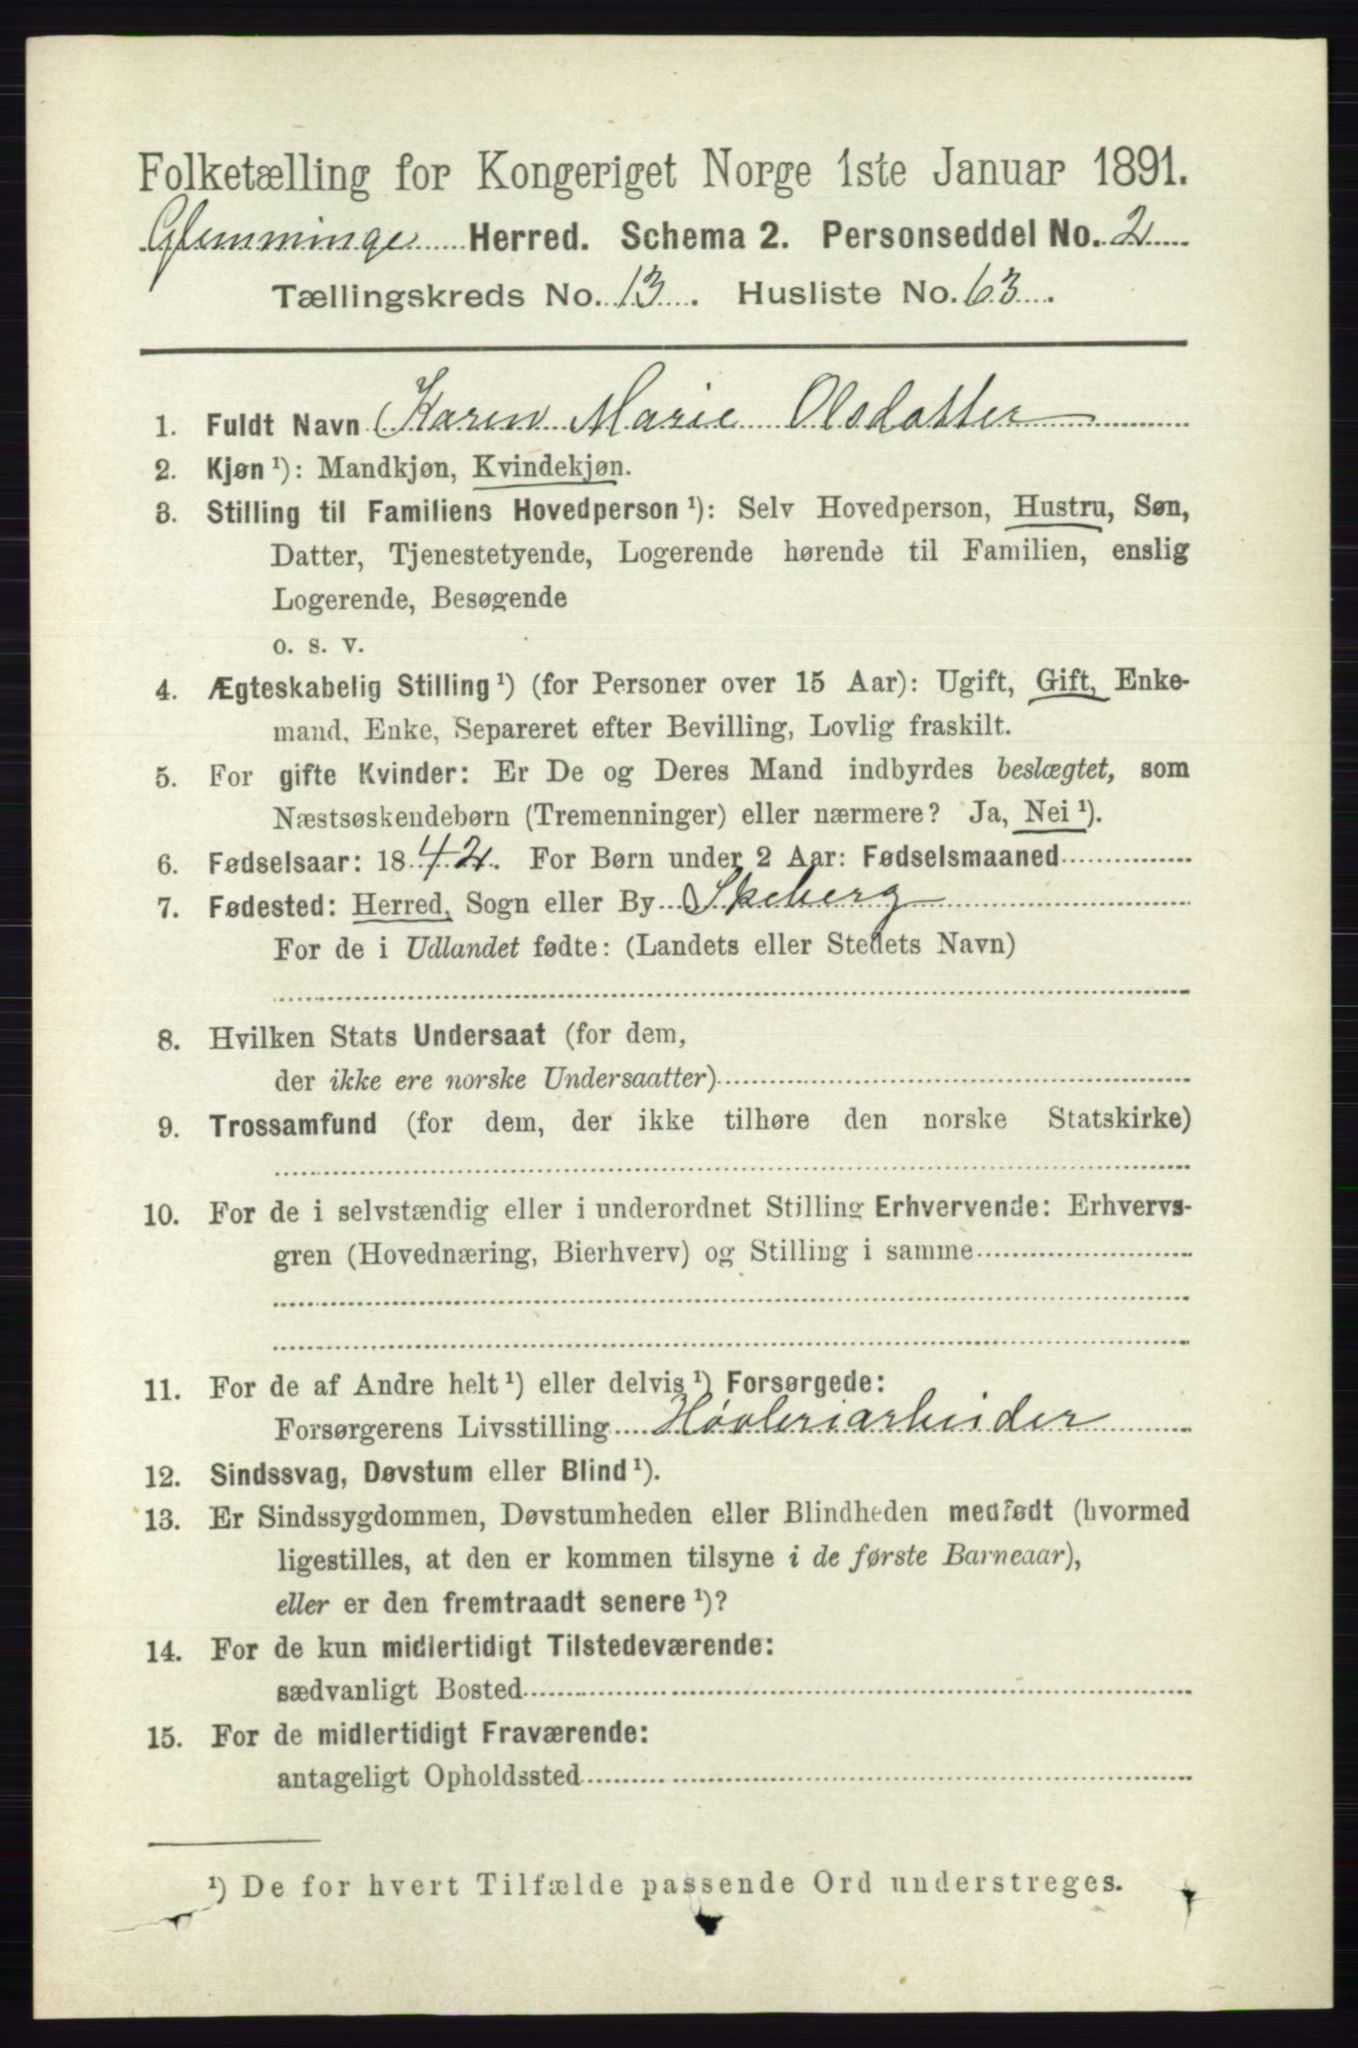 Folketælling for Kongeriget Norge 1ste Januar 1891.
Glemminge Herred. Schema 2. Personseddel No. 2
Tællingskreds No. 13. Husliste No. 63.
1. Fuldt Navn Karen Marie Olsdatter
2. Kjøn ¹): Mandkjøn, Kvindekjøn.
3. Stilling til Familiens Hovedperson ¹): Selv Hovedperson, Hustru, Søn,
Datter, Tjenestetyende, Logerende hørende til Familien, enslig
Logerende, Besøgende
o. s. v.
4. Ægteskabelig Stilling ¹) (for Personer over 15 Aar): Ugift, Gift, Enke-
mand, Enke, Separeret efter Bevilling, Lovlig fraskilt.
5. For gifte Kvinder: Er De og Deres Mand indbyrdes beslægtet, som
Næstsøskendebørn (Tremenninger) eller nærmere? Ja, Nei ¹).
6. Fødselsaar: 1842. For Børn under 2 Aar: Fødselsmaaned
7. Fødested: Herred, Sogn eller By Skeberg
For de i Udlandet fødte: (Landets eller Stedets Navn)
8. Hvilken Stats Undersaat (for dem,
der ikke ere norske Undersaatter)
9. Trossamfund (for dem, der ikke tilhøre den norske Statskirke)
10. For de i selvstændig eller i underordnet Stilling Erhvervende: Erhvervs-
gren (Hovednæring, Bierhverv) og Stilling i samme
11. For de af Andre helt ¹) eller delvis ¹) Forsørgede:
Forsørgerens Livsstilling Høvleriarbeider
12. Sindssvag, Døvstum eller Blind ¹).
13. Er Sindssygdommen, Døvstumheden eller Blindheden medfødt (hvormed
ligestilles, at den er kommen tilsyne i de første Barneaar),
eller er den fremtraadt senere ¹)?
14. For de kun midlertidigt Tilstedeværende:
sædvanligt Bosted
15. For de midlertidigt Fraværende:
antageligt Opholdssted
¹) De for hvert Tilfælde passende Ord understreges.